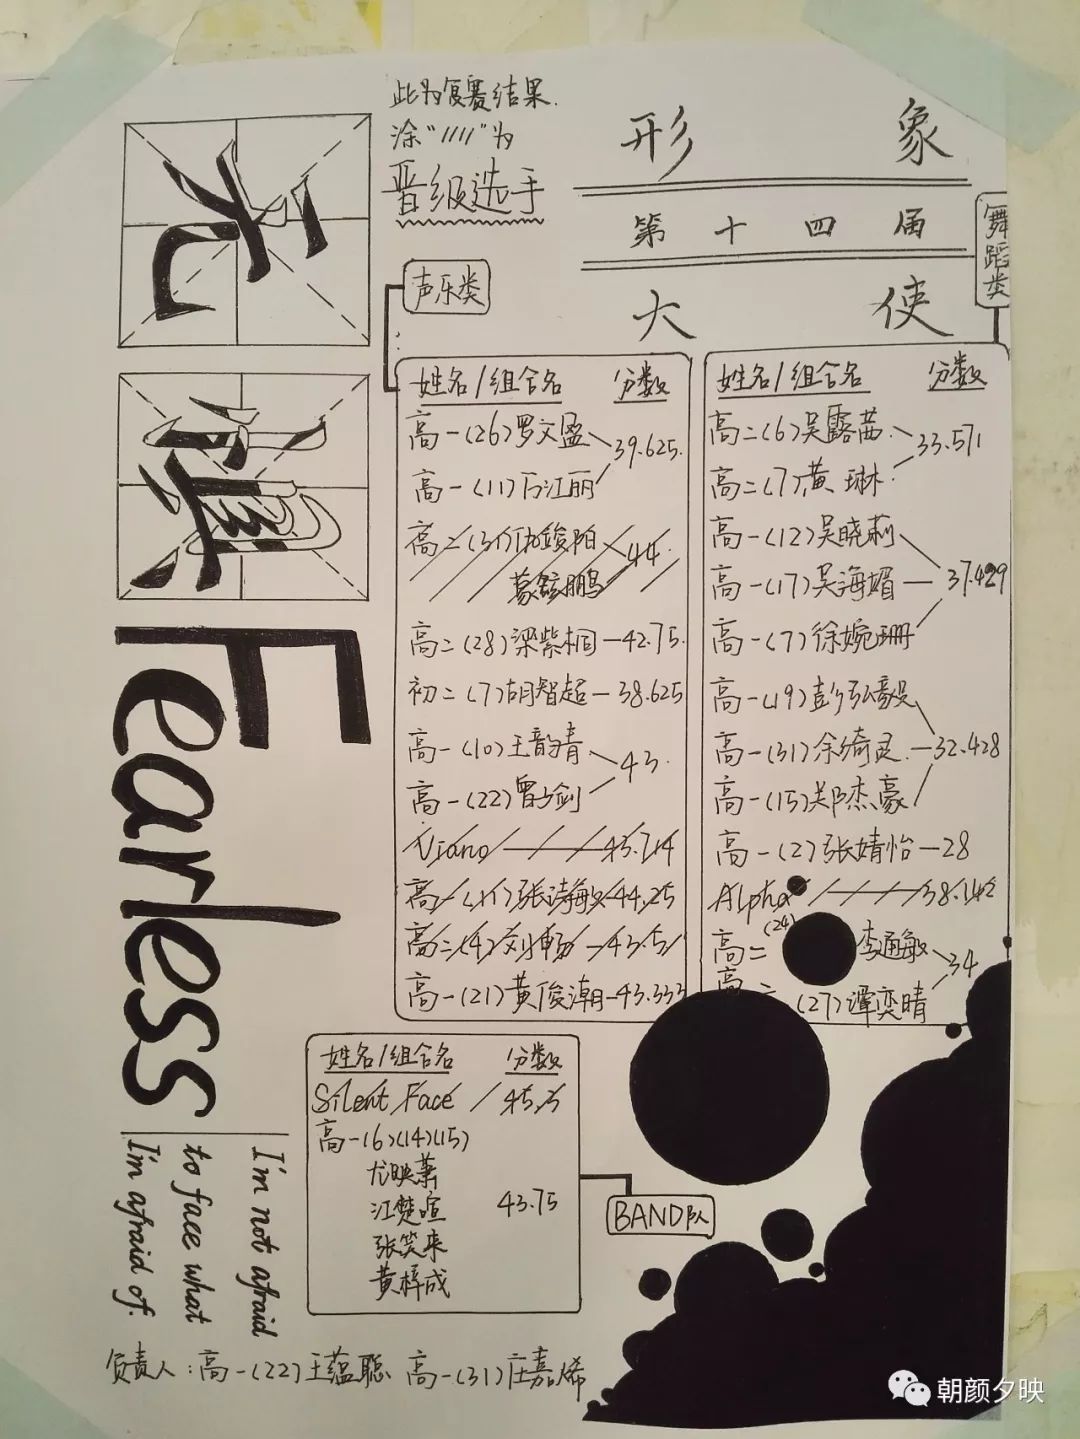 此为复赛结果.
涂“////”为
晋级选手
形象
第十四届
大使
无
惧
Fearless
I'm not afraid
to face what
I'm afraid of.
声乐类
姓名/组合名 分数
高一(26)罗文盈
39.625.
高一(11)万江丽
高二(31)仇骏阳
44
蒙铉鹏
高二(28)梁紫桐—42.75.
初二(7)胡智超—38.625
高一(10)王韵青
43.
高一(22)曾方剑
43.714
张涛敏 44.25
高二(4)刘畅—43.51
高一(21)黄俊潮—43.333
舞蹈类
姓名/组合名 分数
高二(6)吴露茜
33.571
高二(7)黄琳
高一(12)吴晓莉
高一(17)吴海媚—37.429
高一(7)徐婉珊
高一(19)彭弘毅
高一(31)余绮灵—32.428
高一(15)郑杰豪
高一(2)张婧怡—28
Alpha 38.142
高二(24)李通敏
34
高二(27)谭奕晴
姓名/组合名 分数
Silent Face 45.5
高一(6)(14)(15)
尤映萧
江楚喧
43.75
张笑来
黄梓成
BAND队
负责人:高一(22)王蕴聪 高一(31)庄嘉烯
朝颜夕映